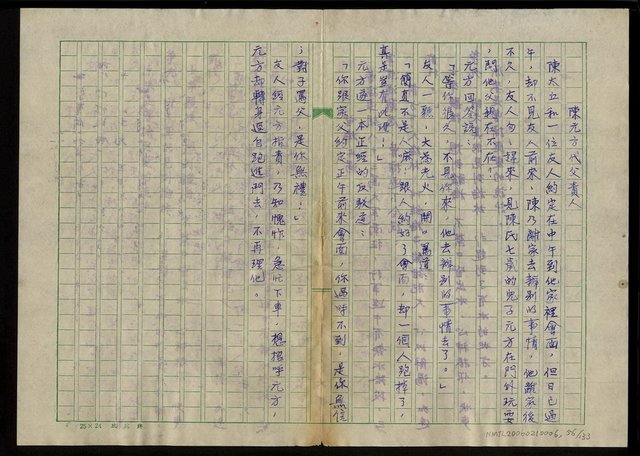 陳元方代父責人
陳太丘和一位友人約定在中午到他家裡會面,但日已過
午,却不見友人前來,陳乃離家去辦別的事情,他離家後
不久,友人匆匆趕來,見陳氏七歲的兒子元方在門外玩耍
,問他父親在不在?
元方回答說:
「等你很久,不見你來,他去辦別的事情去了。」
友人一聽,大為光火,開口罵道:
「簡直不是人!跟人約好了會面,却一個人跑掉了,
真是豈有此理!」
元方這一本正經的反駁道:
「你跟家父約定正午前來會面,你過時不到,是你無信
;對子罵父,是你無禮!」
友人經元方指責,乃知愧怍,急忙下車,想招呼元方,
元方却轉身逕自跑進門去,不再理他。
25×24
NMTL20060210006, 56/133